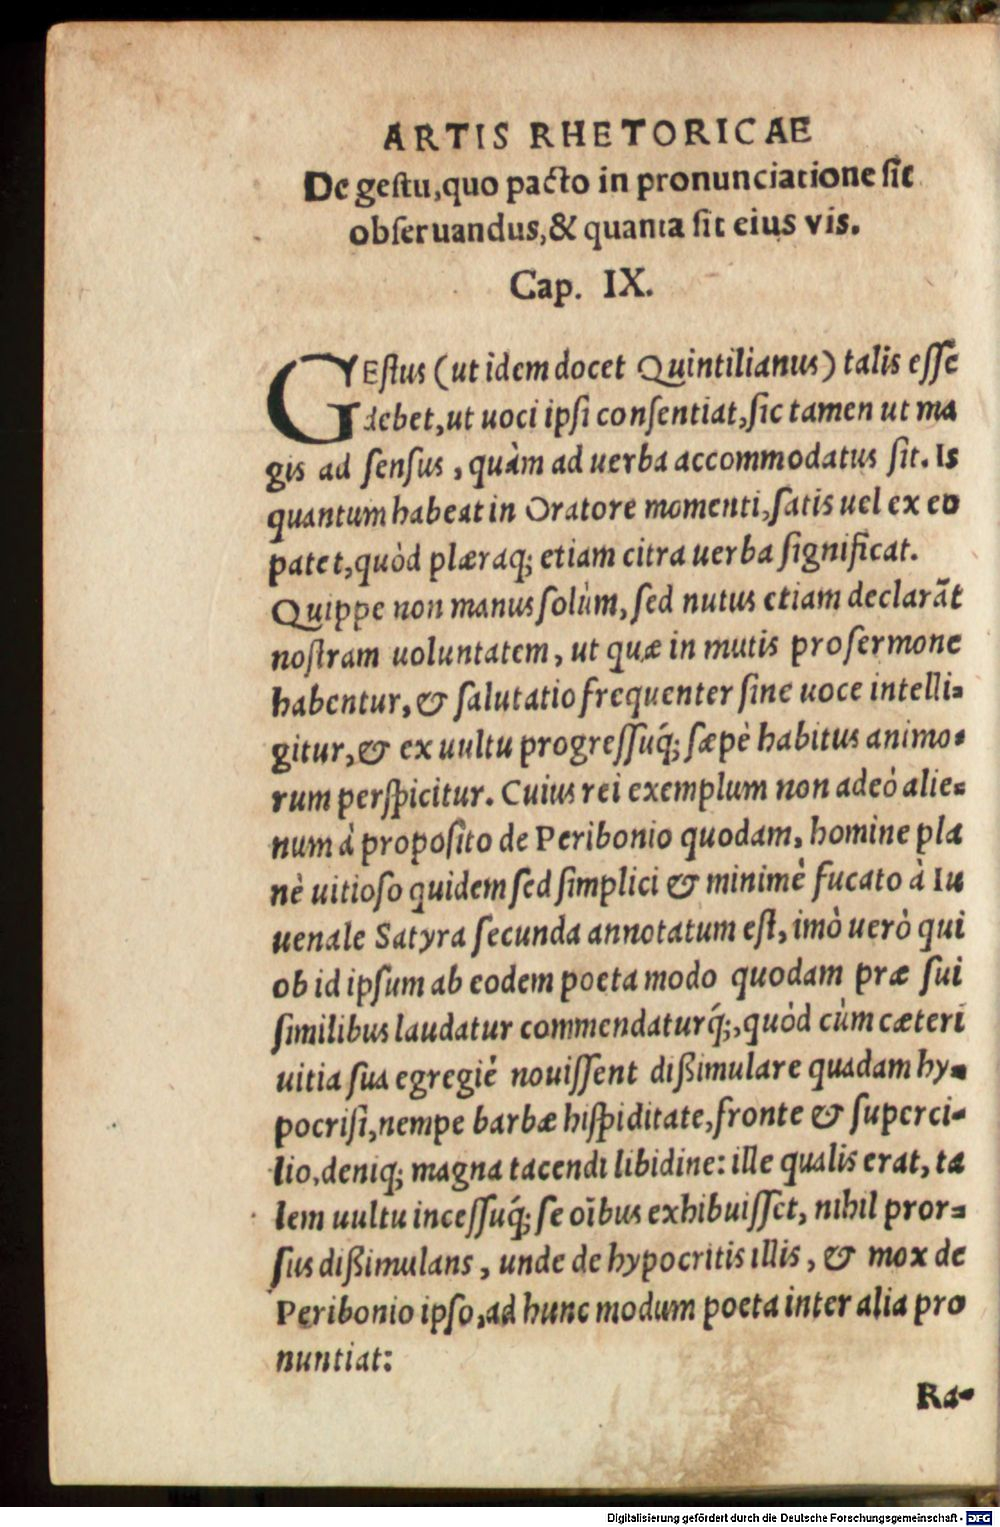 ARTIS RHETORICAE
De gestu, quo pacto in pronunciatione sit
obseruandus, & quanta sit eius vis.
Cap. IX.
GEstus (ut idem docet Quintilianus) talis esse
debet, ut uoci ipsi consentiat, sic tamen ut ma
gis ad sensus, quàm ad uerba accommodatus sit. Is
quantum habeat in Oratore momenti, satis uel ex eo
patet, quòd plæraq; etiam citra uerba significat.
Quippe non manus solùm, sed nutus etiam declarāt
nostram uoluntatem, ut quæ in mutis pro sermone
habentur, & salutatio frequenter sine uoce intelli-
gitur, & ex uultu progressuq́; sæpè habitus animo-
rum perspicitur. Cuius rei exemplum non adeò alie-
num à proposito de Peribonio quodam, homine pla
nè uitioso quidem sed simplici & minimè fucato à Iu
uenale Satyra secunda annotatum est, imò uerò qui
ob id ipsum ab eodem poeta modo quodam præ sui
similibus laudatur commendaturq́;, quòd cùm cæteri
uitia sua egregiè nouissent dißimulare quadam hy-
pocrisi, nempe barbæ hispiditate, fronte & superci-
lio, deniq; magna tacendi libidine: ille qualis erat, ta
lem uultu incessuq́; se oībus exhibuisset, nihil pror-
sus dißimulans, unde de hypocritis illis, & mox de
Peribonio ipso, ad hunc modum poeta inter alia pro
nuntiat:
Ra-
Digitalisierung gefördert durch die Deutsche Forschungsgemeinschaft - DFG